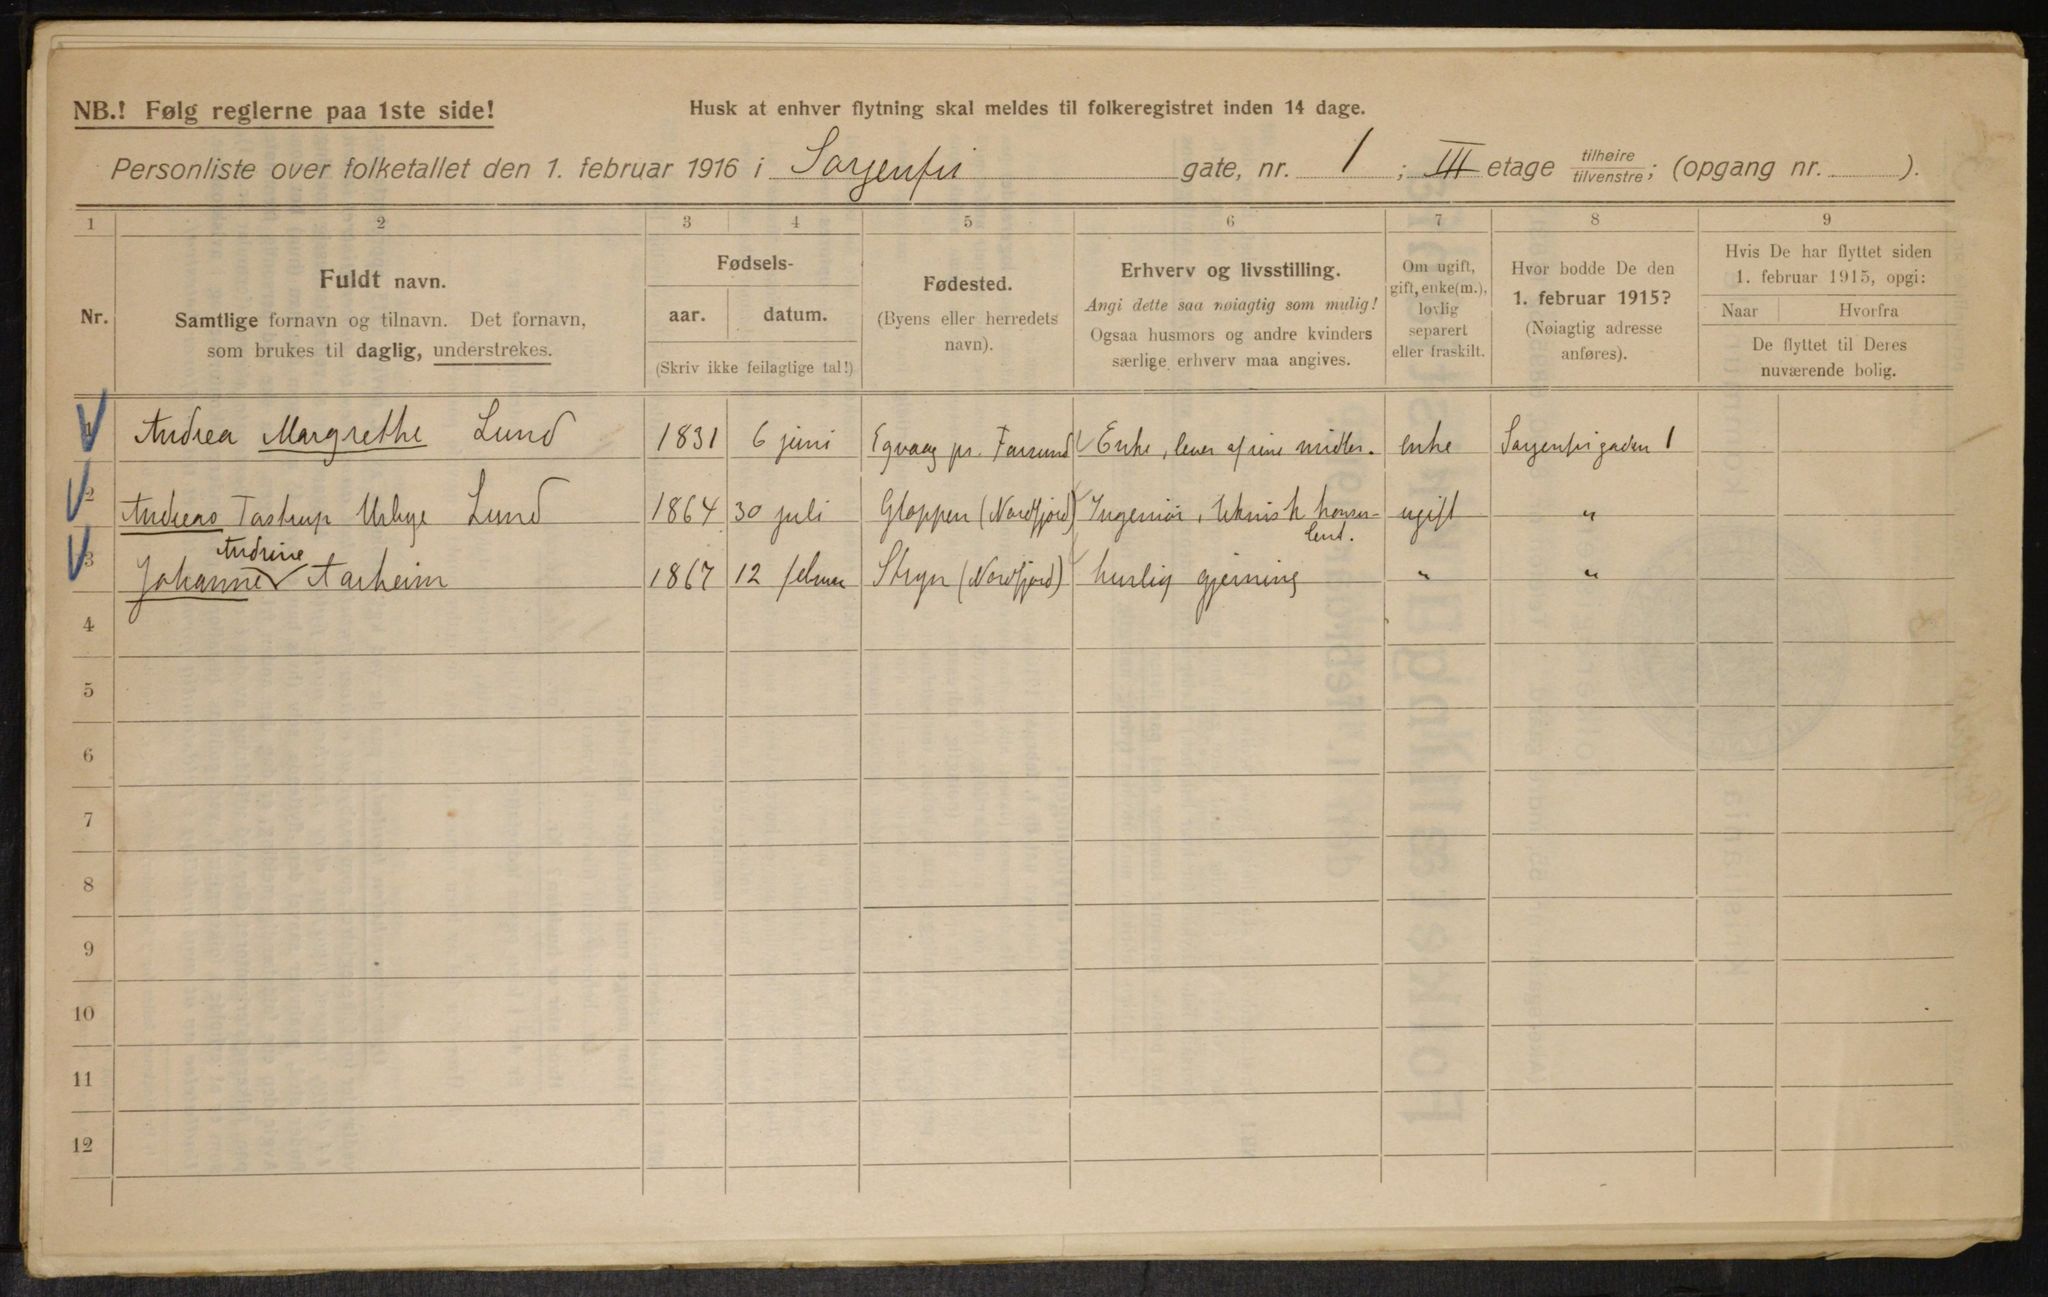 NB.! Følg reglerne paa 1ste side!
Husk at enhver flytning skal meldes til folkeregistret inden 14 dage.
Personliste over folketallet den 1. februar 1916 i Sorgenfri gate, nr. 1 ; III etage tilhøire tilvenstre; (opgang nr. ).
1 2 3 4 5 6 7 8 9
Nr.
Fuldt navn.
Samtlige fornavn og tilnavn. Det fornavn,
som brukes til daglig, understrekes.
Fødsels-
aar. datum.
(Skriv ikke feilagtige tal!)
Fødested.
(Byens eller herredets
navn).
Erhverv og livsstilling.
Angi dette saa nøiagtig som mulig!
Ogsaa husmors og andre kvinders
særlige erhverv maa angives.
Om ugift,
gift, enke(m.),
lovlig
separert
eller fraskilt.
Hvor bodde De den
1. februar 1915?
(Nøiagtig adresse
anføres).
Hvis De har flyttet siden
1. februar 1915, opgi:
Naar Hvorfra
De flyttet til Deres
nuværende bolig.
1 Andrea Margrethe Lund 1831 6 juni Egvaag pr. Farsund Enke, lever af sine midler. enke Sorgenfrigaden 1
2 Andreas Tostrup Urbye Lund 1864 30 juli Gloppen (Nordfjord) Ingeniør, teknisk konsu-
lent. ugift "
Andrine
3 Johanne Aarheim 1867 12 februar Stryn (Nordfjord) huslig gjerning " "
4
5
6
7
8
9
10
11
12